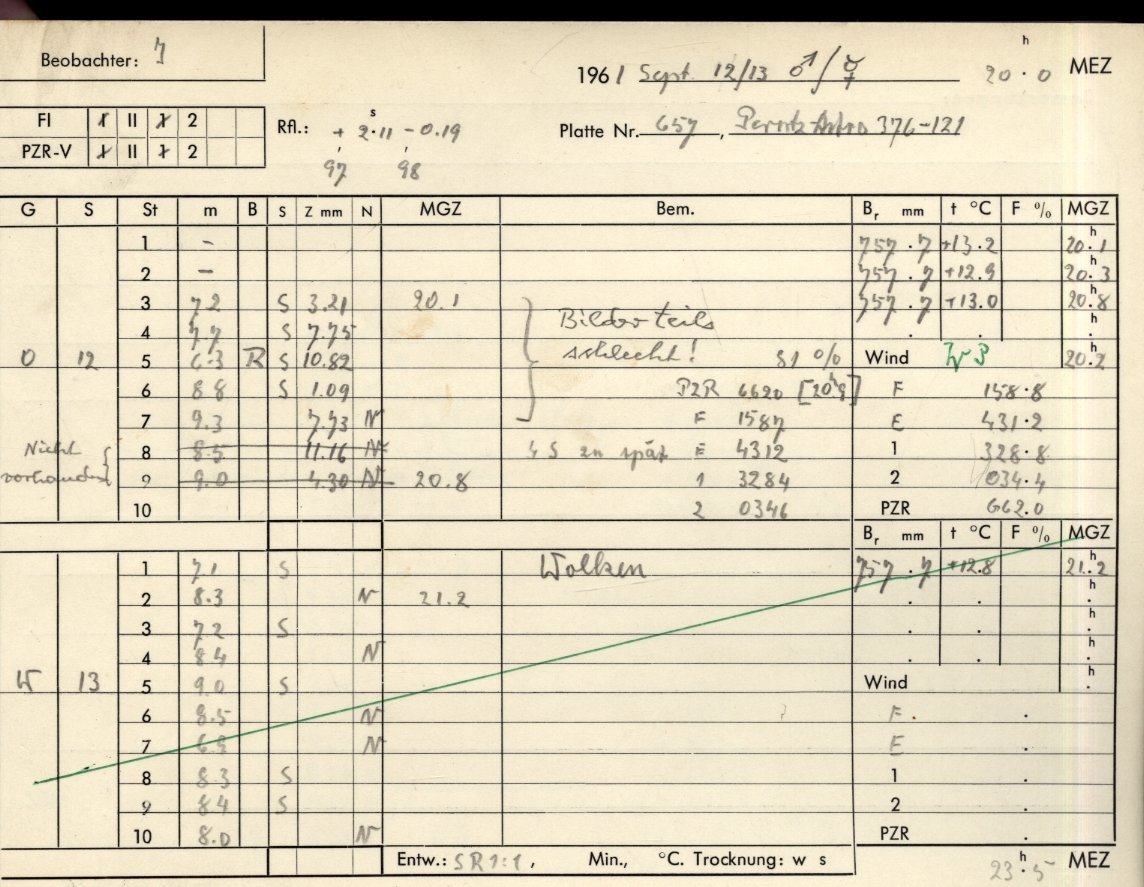 h
Beobachter:
1961 Sept. 12/13 ♂/☿ 20.0 MEZ
FI 1 II 1 2
s
Rfl.: + 2.11 - 0.19
Platte Nr. 657, 376-121
PZR-V 1 II 1 2
97 98
G S St m B S Z mm N MGZ Bem. Br mm t °C F % MGZ
1 - 757.7 +13.2 20.1 h
2 - 757.7 +12.9 20.3 h
3 7.2 S 3.21 20.1 757.7 +13.0 20.8 h
4 7.7 S 7.75 Bilder teils . . h
O 12 5 6.3 R S 10.82 schlecht! 81 % Wind W 3 20.2 h
6 8.8 S 1.09 PZR 6620 [20.8 h] F 158.8
7 9.3 7.73 N F 1587 E 431.2
Nicht 8 8.5 11.16 N 4 S zu spät E 4312 1 328.8
vorhanden 9 9.0 4.30 N 20.8 1 3284 2 034.4
10 2 0346 PZR 662.0
Br mm t °C F % MGZ
1 7.1 S Wolken 757.7 +12.8 21.2 h
2 8.3 N 21.2 . . h
3 7.2 S . . h
4 8.4 N . . h
W 13 5 9.0 S Wind . h
6 8.5 N F .
7 6.9 N E .
8 8.3 S 1 .
9 8.4 S 2 .
10 8.0 N PZR .
Entw.: SR 1:1, Min., °C. Trocknung: w s 23.5 h MEZ